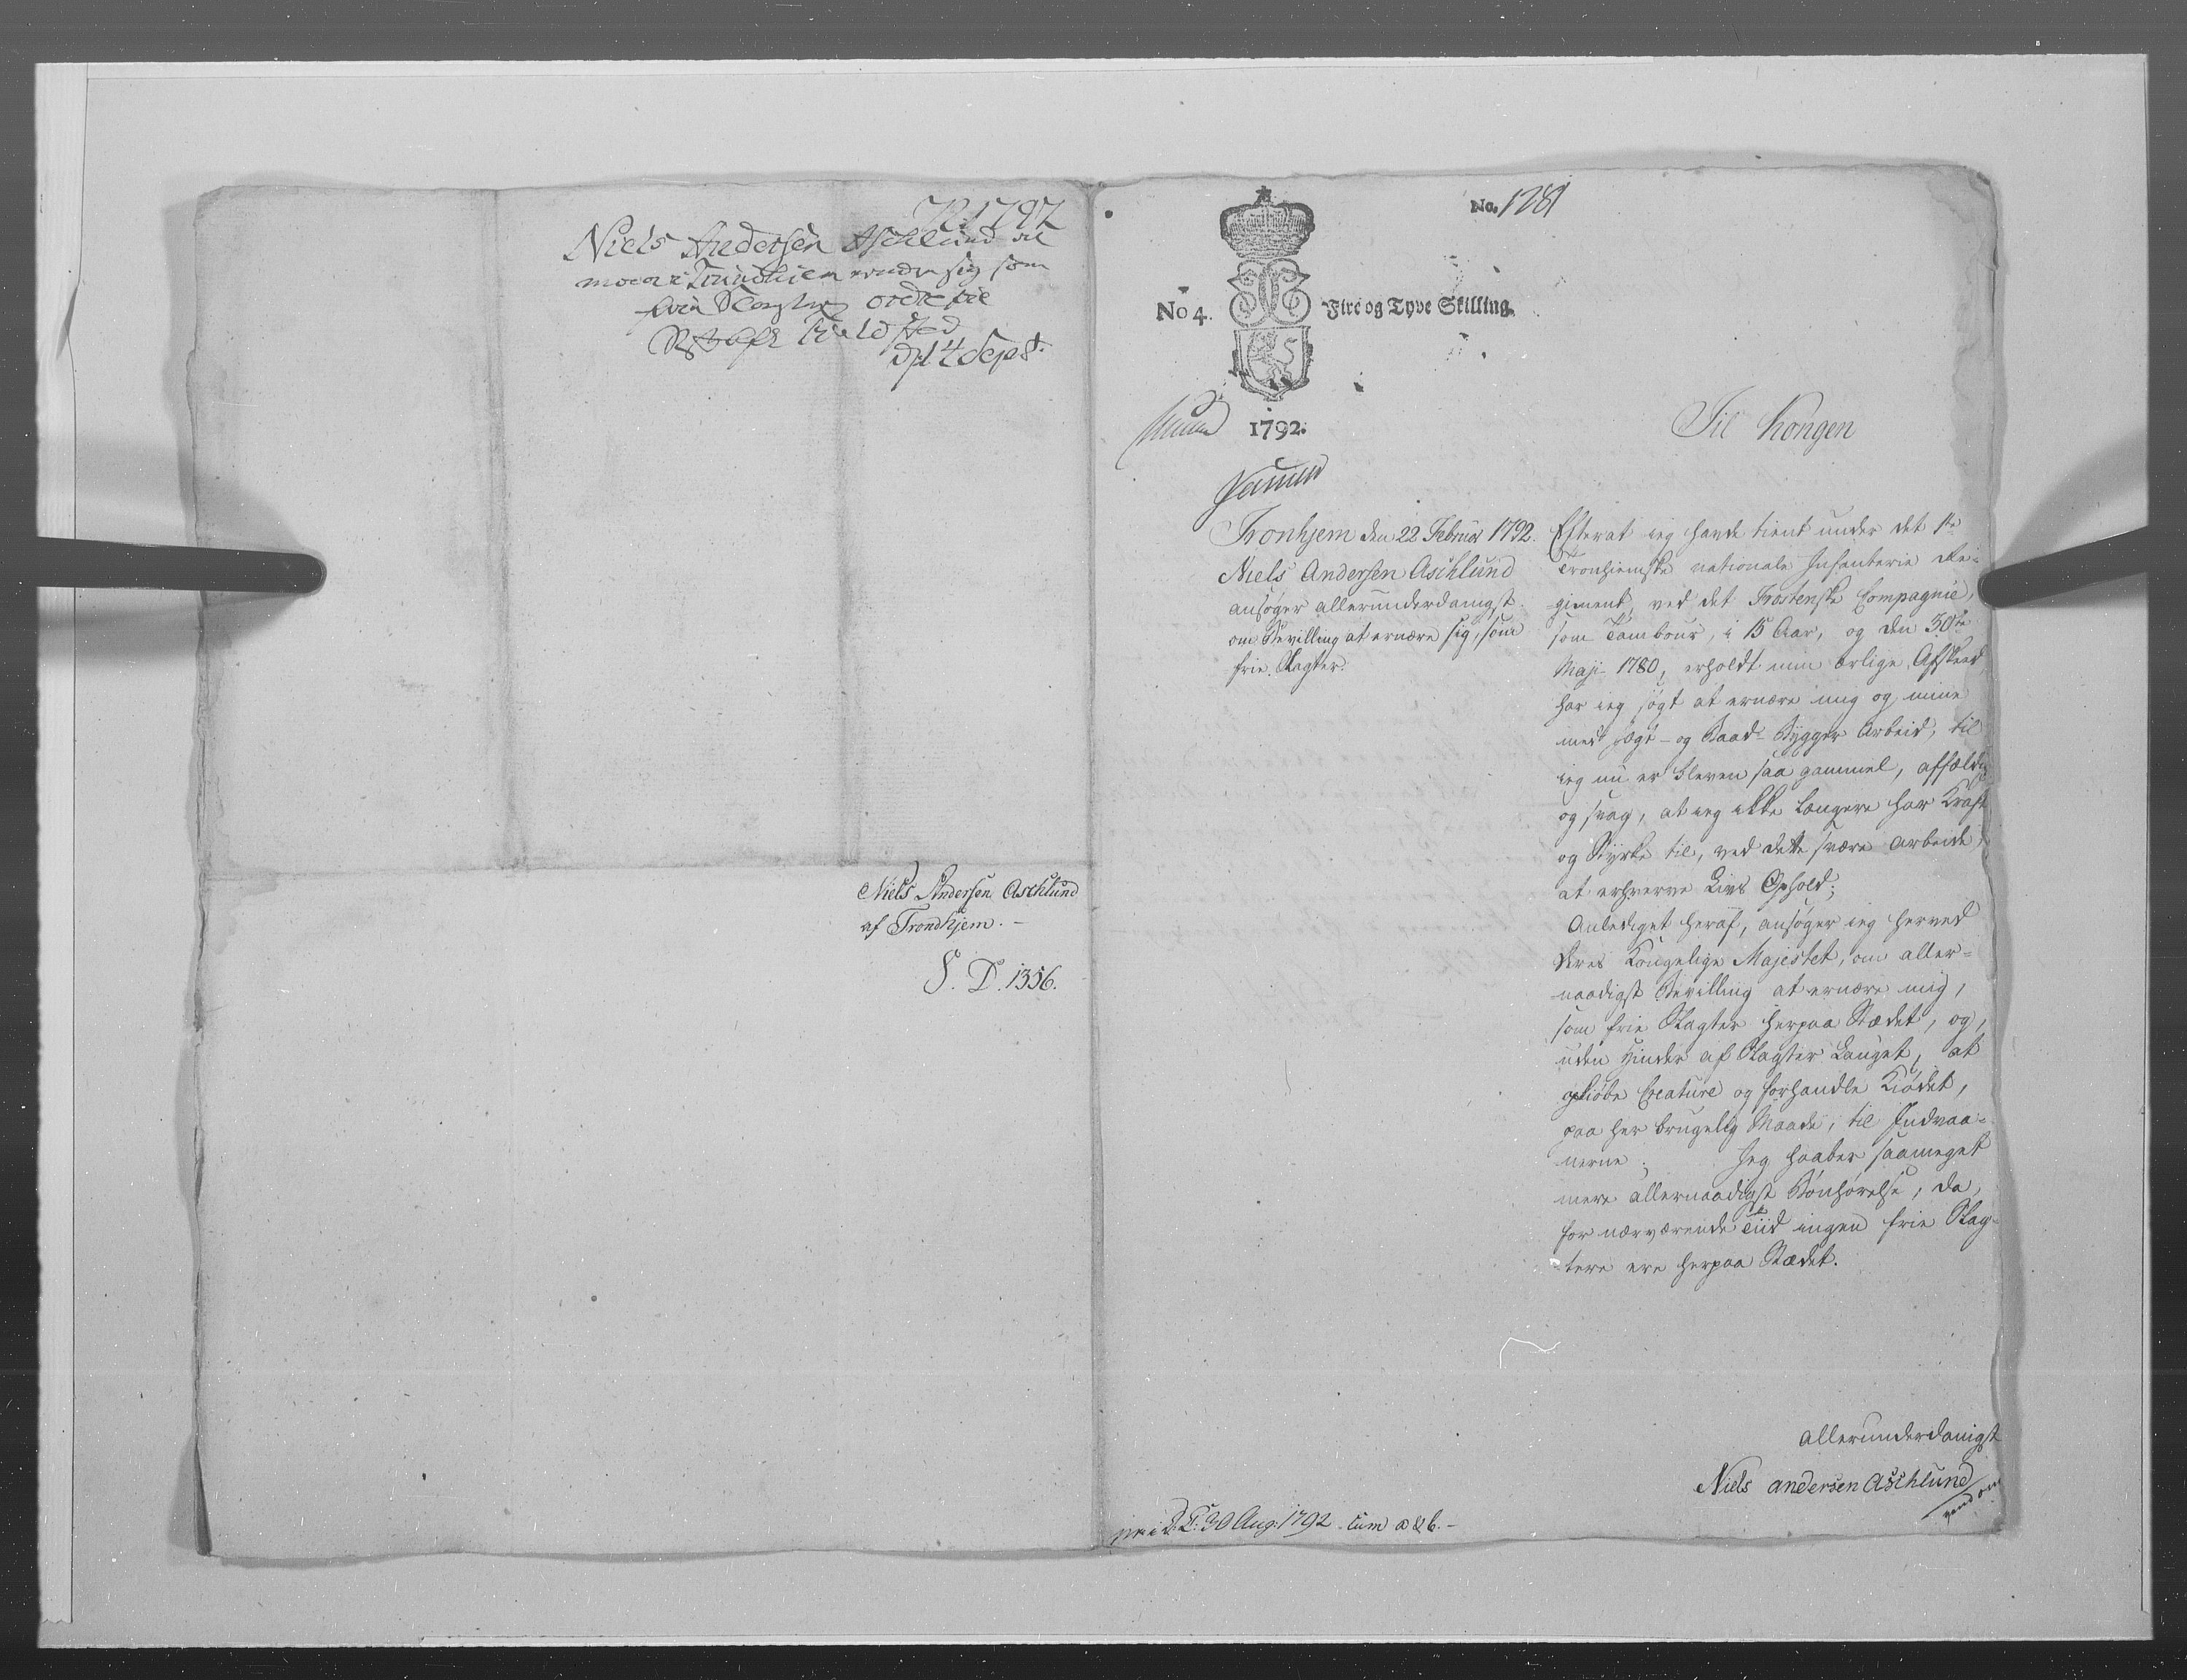 1797
Niels Andersen Aschlund at
maae i Trundhiem ernære sig som
frie Slagter
d 14 Sept.
Niels Andersen Aschlund
af Trondhjem. -
P. D. 1356.
No. 1281
No 4. Fire og Tyve Skilling.
1792.
Til Kongen
Tronhjem den 22 Februar 1792.
Niels Andersen Aschlund
ansøger allerunderdanigst
om Bevilling at ernære sig, som
frie Slagter.
Efterat ieg havde tient under det 1te
Tronhiemske nationale Infanterie Re-
giment, ved det Frostenske Compagnie,
som Tambour, i 15 Aar, og den 30te
Maji 1780, erholdt min ærlige Afskeed
har ieg søgt at ernære mig og mine
med Jægt- og Baad-Bygger Arbeid, til
ieg nu er bleven saa gammel, affældig
og svag, at ieg ikke længere har Kraft
og Styrke til, ved dette svære Arbeide
at erhverve Livs Ophold;
Anlediget heraf, ansøger ieg herved
Deres Kongelige Majestet, om aller-
naadigst Bevilling at ernære mig,
som frie Slagter herpaa Stædet, og,
uden Hinder af Slagter Lauget, at
opkiøbe Creature og forhandle Kiødet,
paa her brugelig Maade, til Indvaa-
nerne; Jeg haaber saameget
mere allernaadigst Bønhørelse, da,
for nærværende Tiid ingen frie Slag-
tere ere herpaa Stædet.
allerunderdanigst
Niels andersen Aschlund
vend om
30 Aug: 1792. cum a & b. -